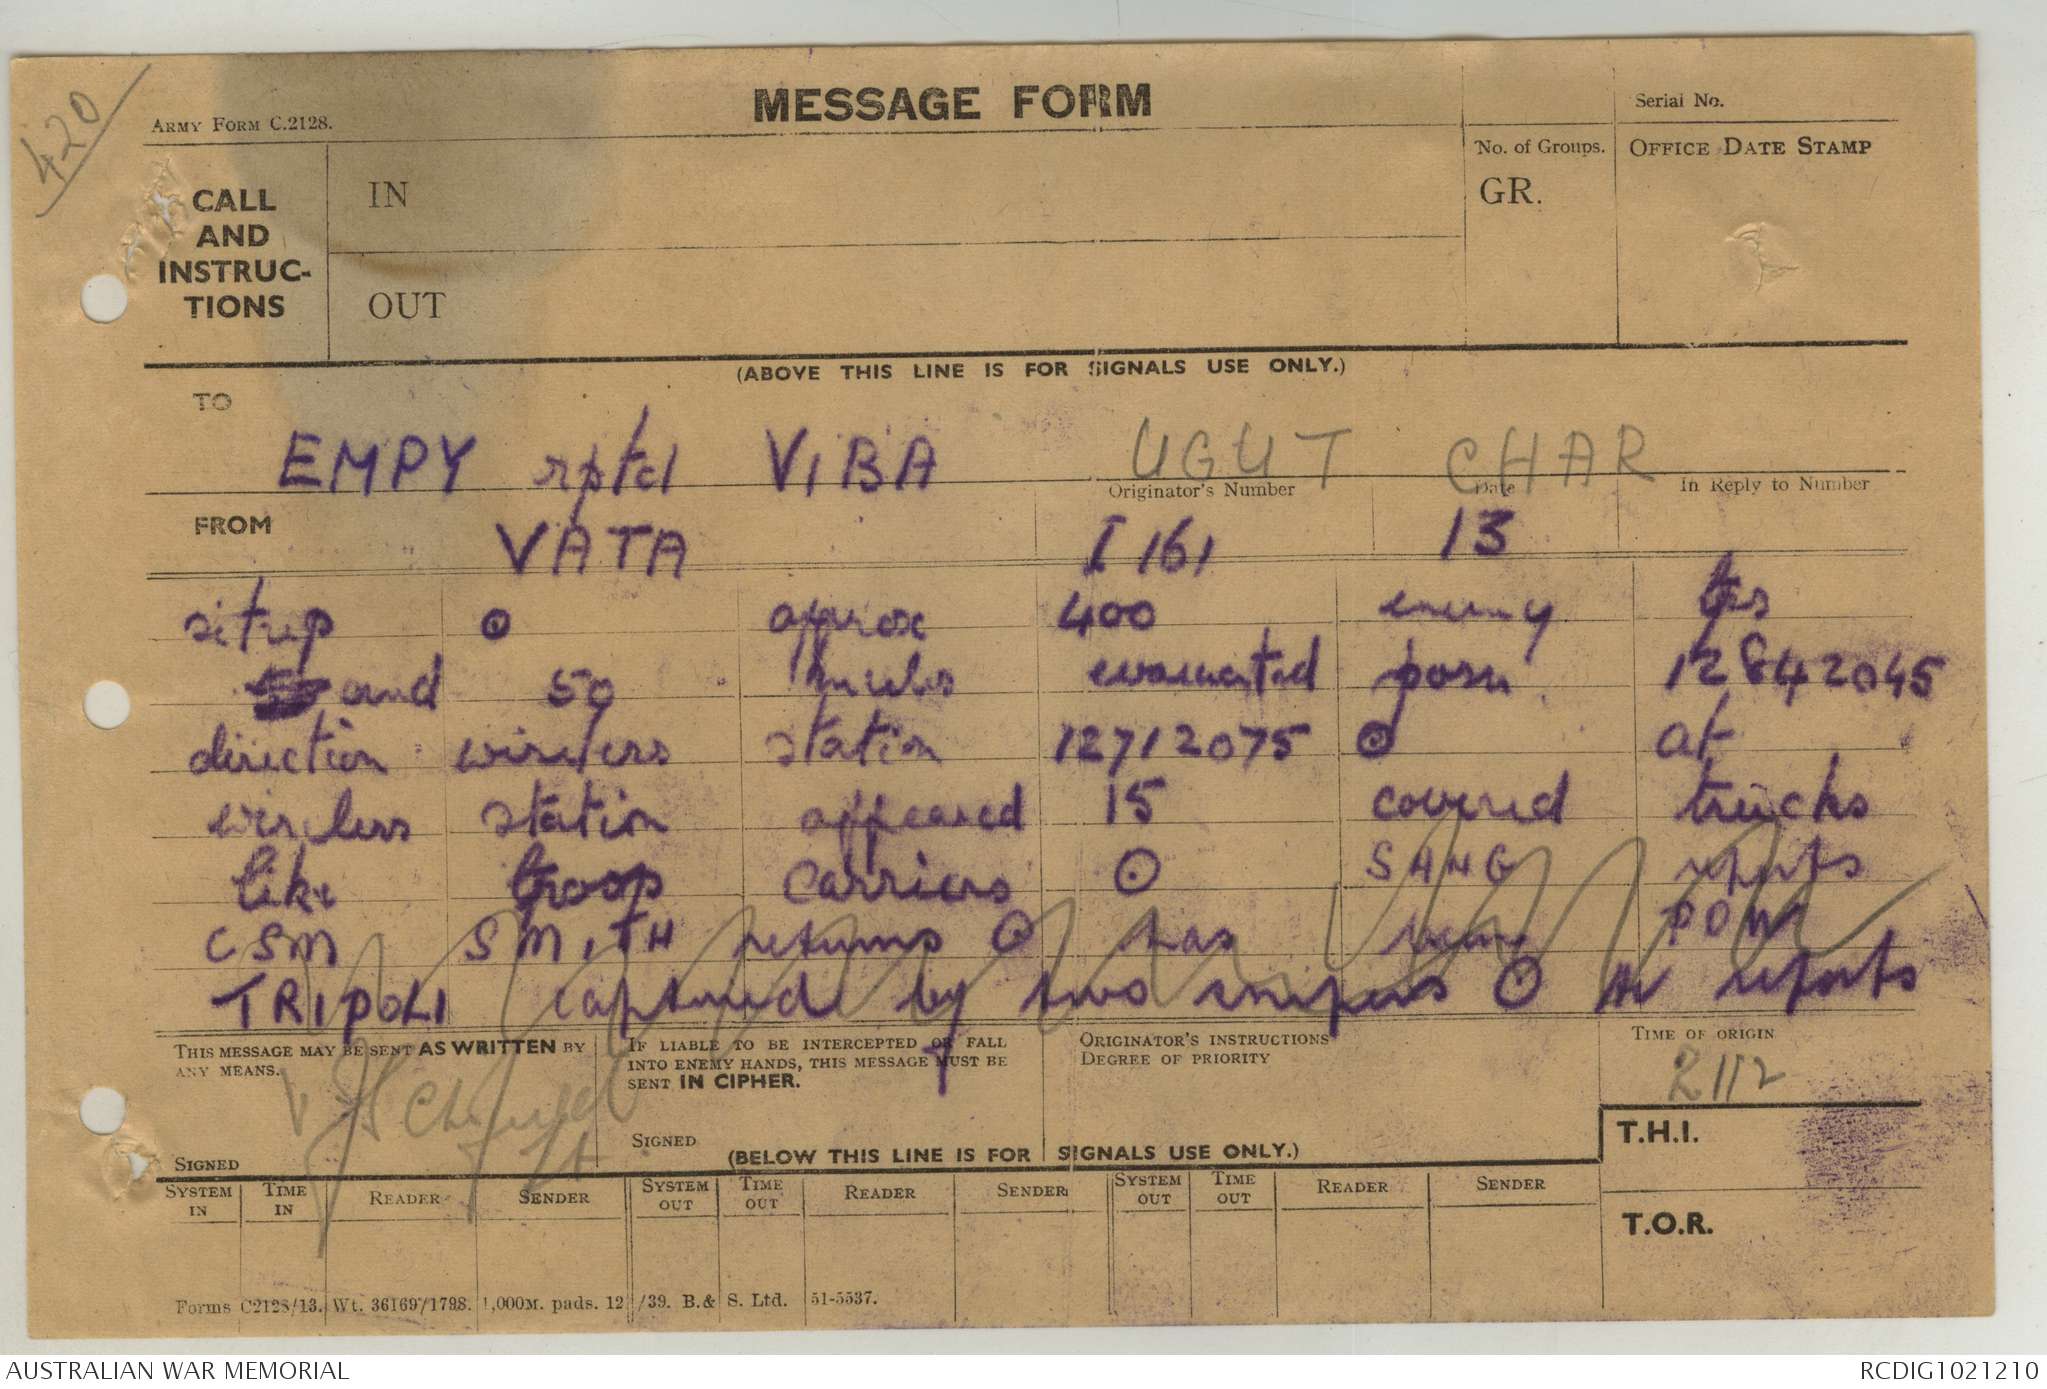 420
MESSAGE FORM
ARMY FORM C.2128.
Serial No.
No. of Groups.
GR.
OFFICE DATE STAMP
CALL
AND
INSTRUC-
TIONS
IN
OUT
(ABOVE THIS LINE IS FOR SIGNALS USE ONLY.)
TO
EMPY rptd VIBA UGUT CHAR
Originator's Number Date In Reply to Number
FROM VATA I 161 13
sitrep ⊙ approx 400 enemy tps
and 50 evacuated posn 12842045
direction wireless station 12712075 ⊙ at
wireless station appeared 15 covered trucks
like troop carriers ⊙ SANG reports
CSM SMITH returns ⊙ has been POW
TRIPOLI captured by two snipers ⊙ He reports
THIS MESSAGE MAY BE SENT AS WRITTEN BY
ANY MEANS.
SIGNED
IF LIABLE TO BE INTERCEPTED OR FALL
INTO ENEMY HANDS, THIS MESSAGE MUST BE
SENT IN CIPHER.
SIGNED
ORIGINATOR'S INSTRUCTIONS
DEGREE OF PRIORITY
TIME OF ORIGIN
2112
T.H.I.
(BELOW THIS LINE IS FOR SIGNALS USE ONLY.)
SYSTEM IN TIME IN READER SENDER SYSTEM OUT TIME OUT READER SENDER SYSTEM OUT TIME OUT READER SENDER
T.O.R.
Forms C2128/13. Wt. 36169/1798. 1,000M. pads. 12/39. B.& S. Ltd. 51-5537.
AUSTRALIAN WAR MEMORIAL
RCDIG1021210